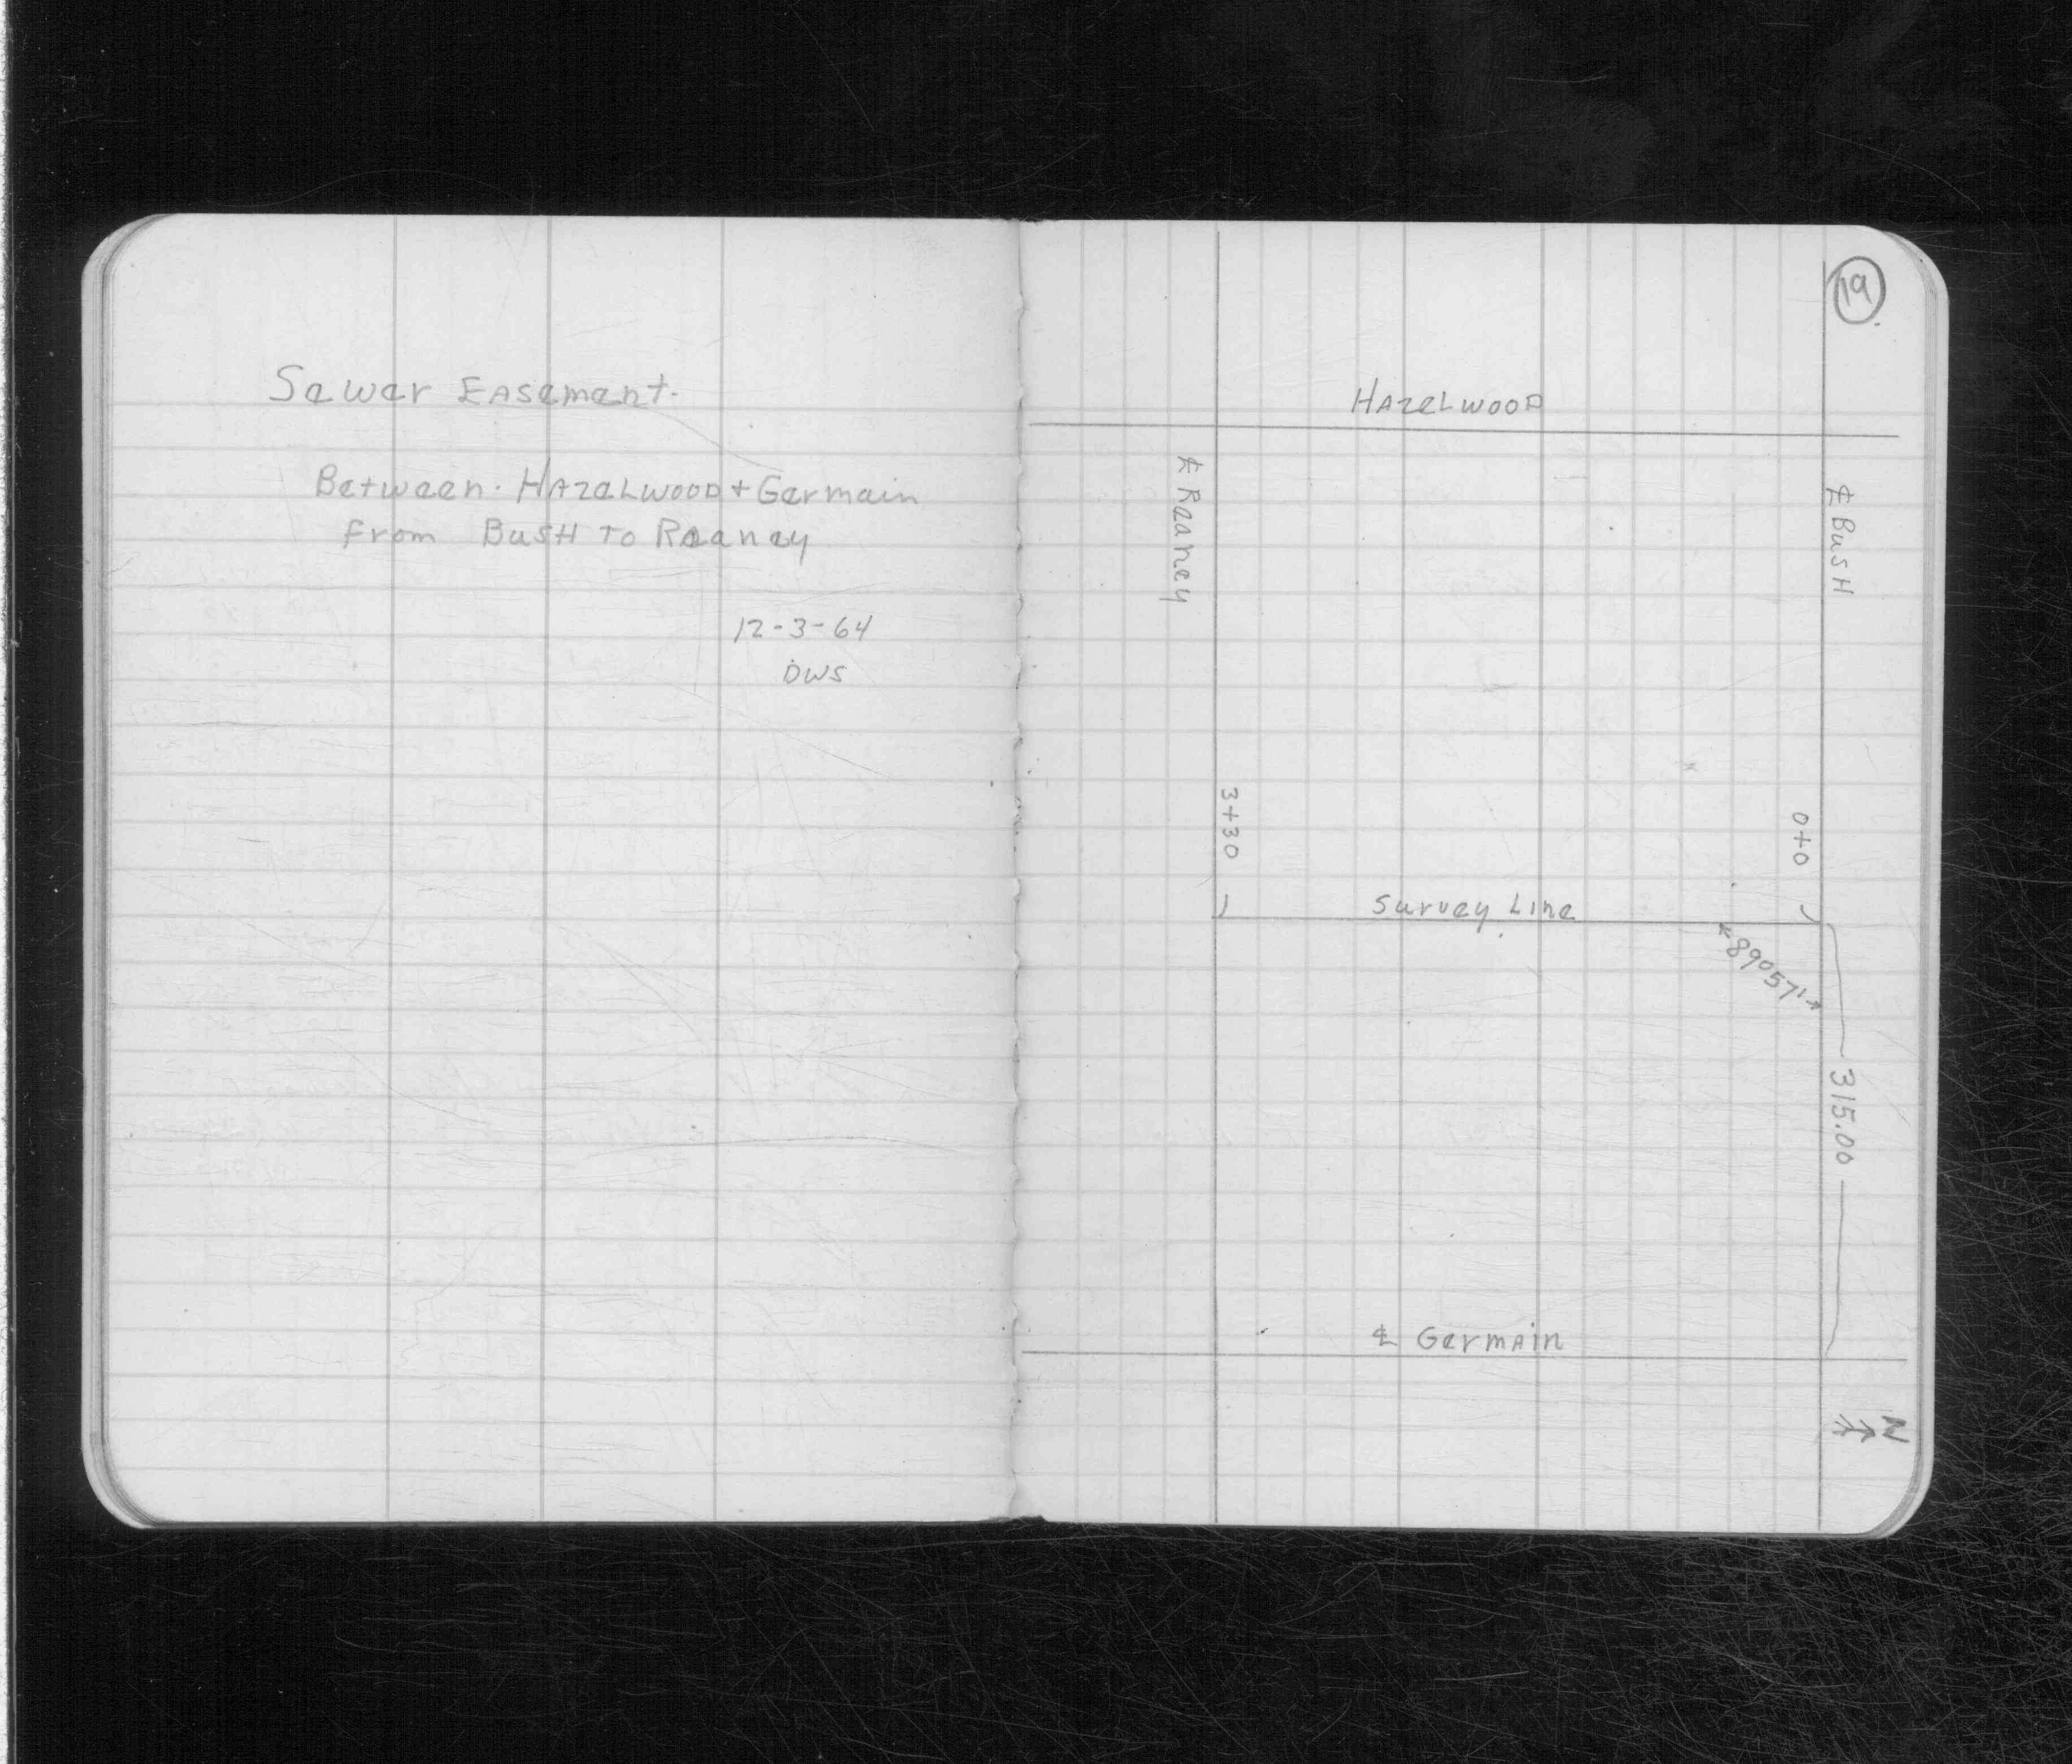 Sewer Easement.
Between. Hazelwood + Germain
From Bush to Reaney
12-3-64
DWS
19
Hazelwood
℄ Reaney
℄ Bush
3+30
0+0
Survey Line
89°57'
315.00
℄ Germain
N